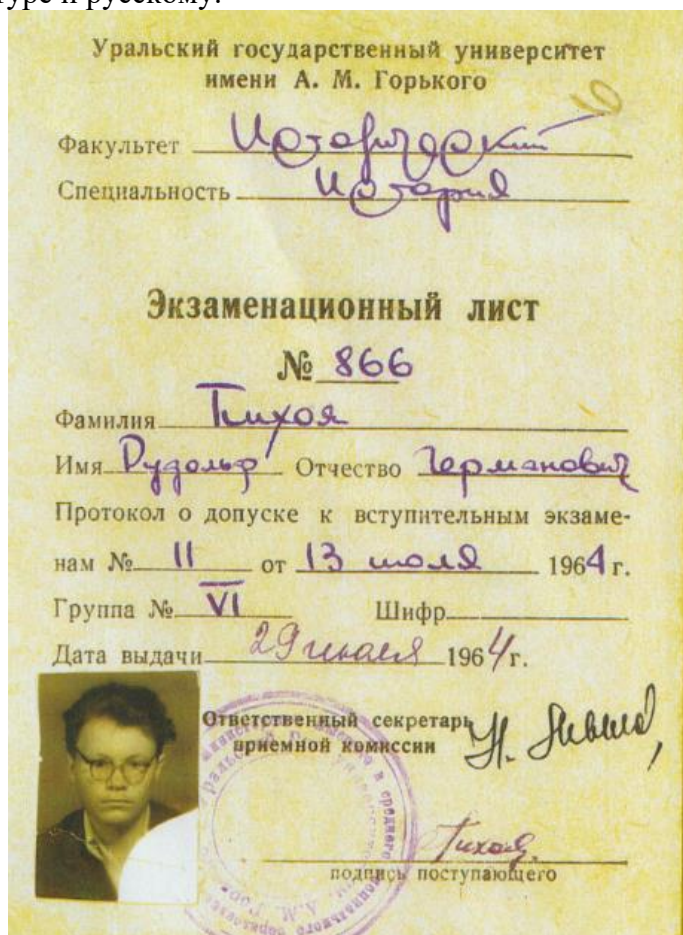 туре и русскому.
Уральский государственный университет
имени А. М. Горького
Факультет Исторический
Специальность История
Экзаменационный лист
№ 866
Фамилия Пихоя
Имя Рудольф Отчество Германович
Протокол о допуске к вступительным экзаме-
нам № 11 от 13 июля 1964 г.
Группа № VI Шифр
Дата выдачи 29 июля 1964 г.
Ответственный секретарь
приемной комиссии
Пихоя
подпись поступающего